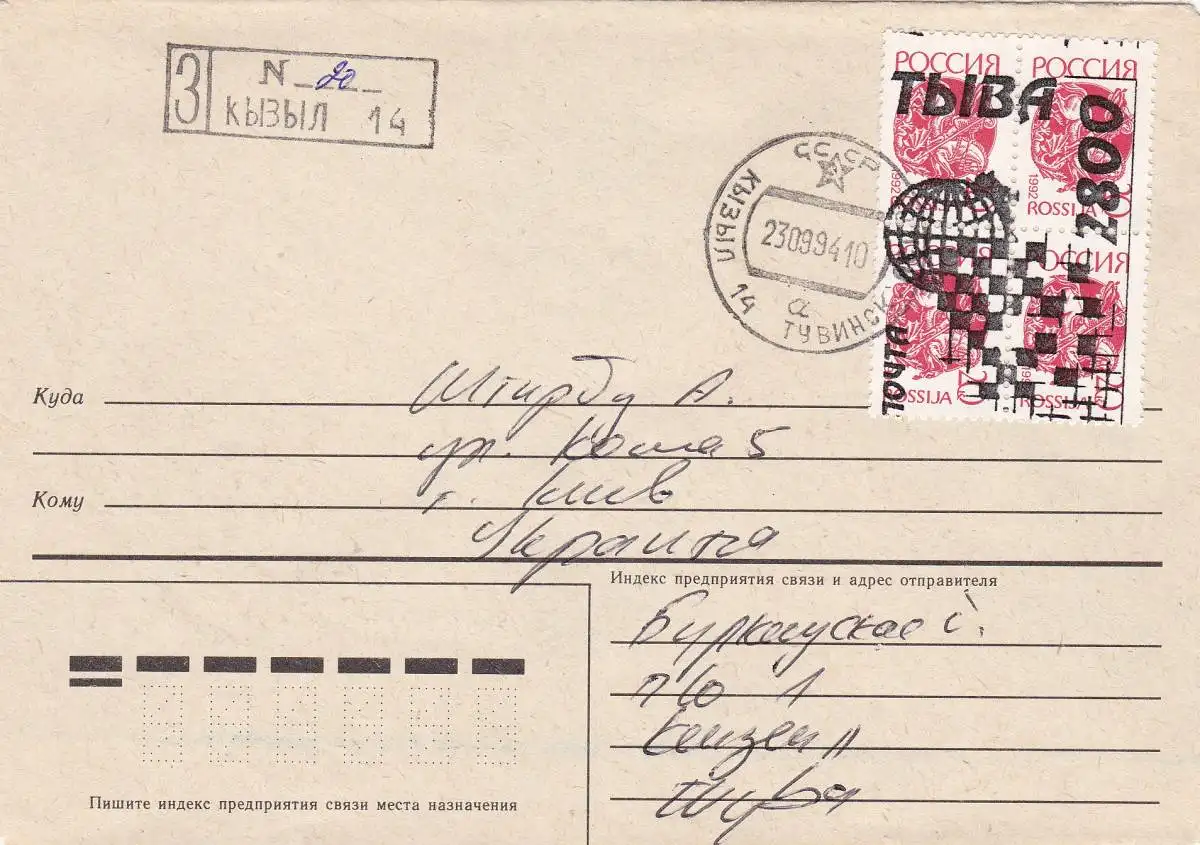 З
N 20
КЫЗЫЛ 14
РОССИЯ
РОССИЯ
ТЫВА
2800
1992
1992
ROSSIJA
СССР
КЫЗЫЛ 14
23099410
а
ТУВИНСК
РОССИЯ
РОССИЯ
ПОЧТА
ROSSIJA 20
ROSSIJA 20
Куда
Штирбу А.
ул.
5
Кому
г. Киев
Украина
Индекс предприятия связи и адрес отправителя
п/о 1
Кызыл
Тыва
Пишите индекс предприятия связи места назначения